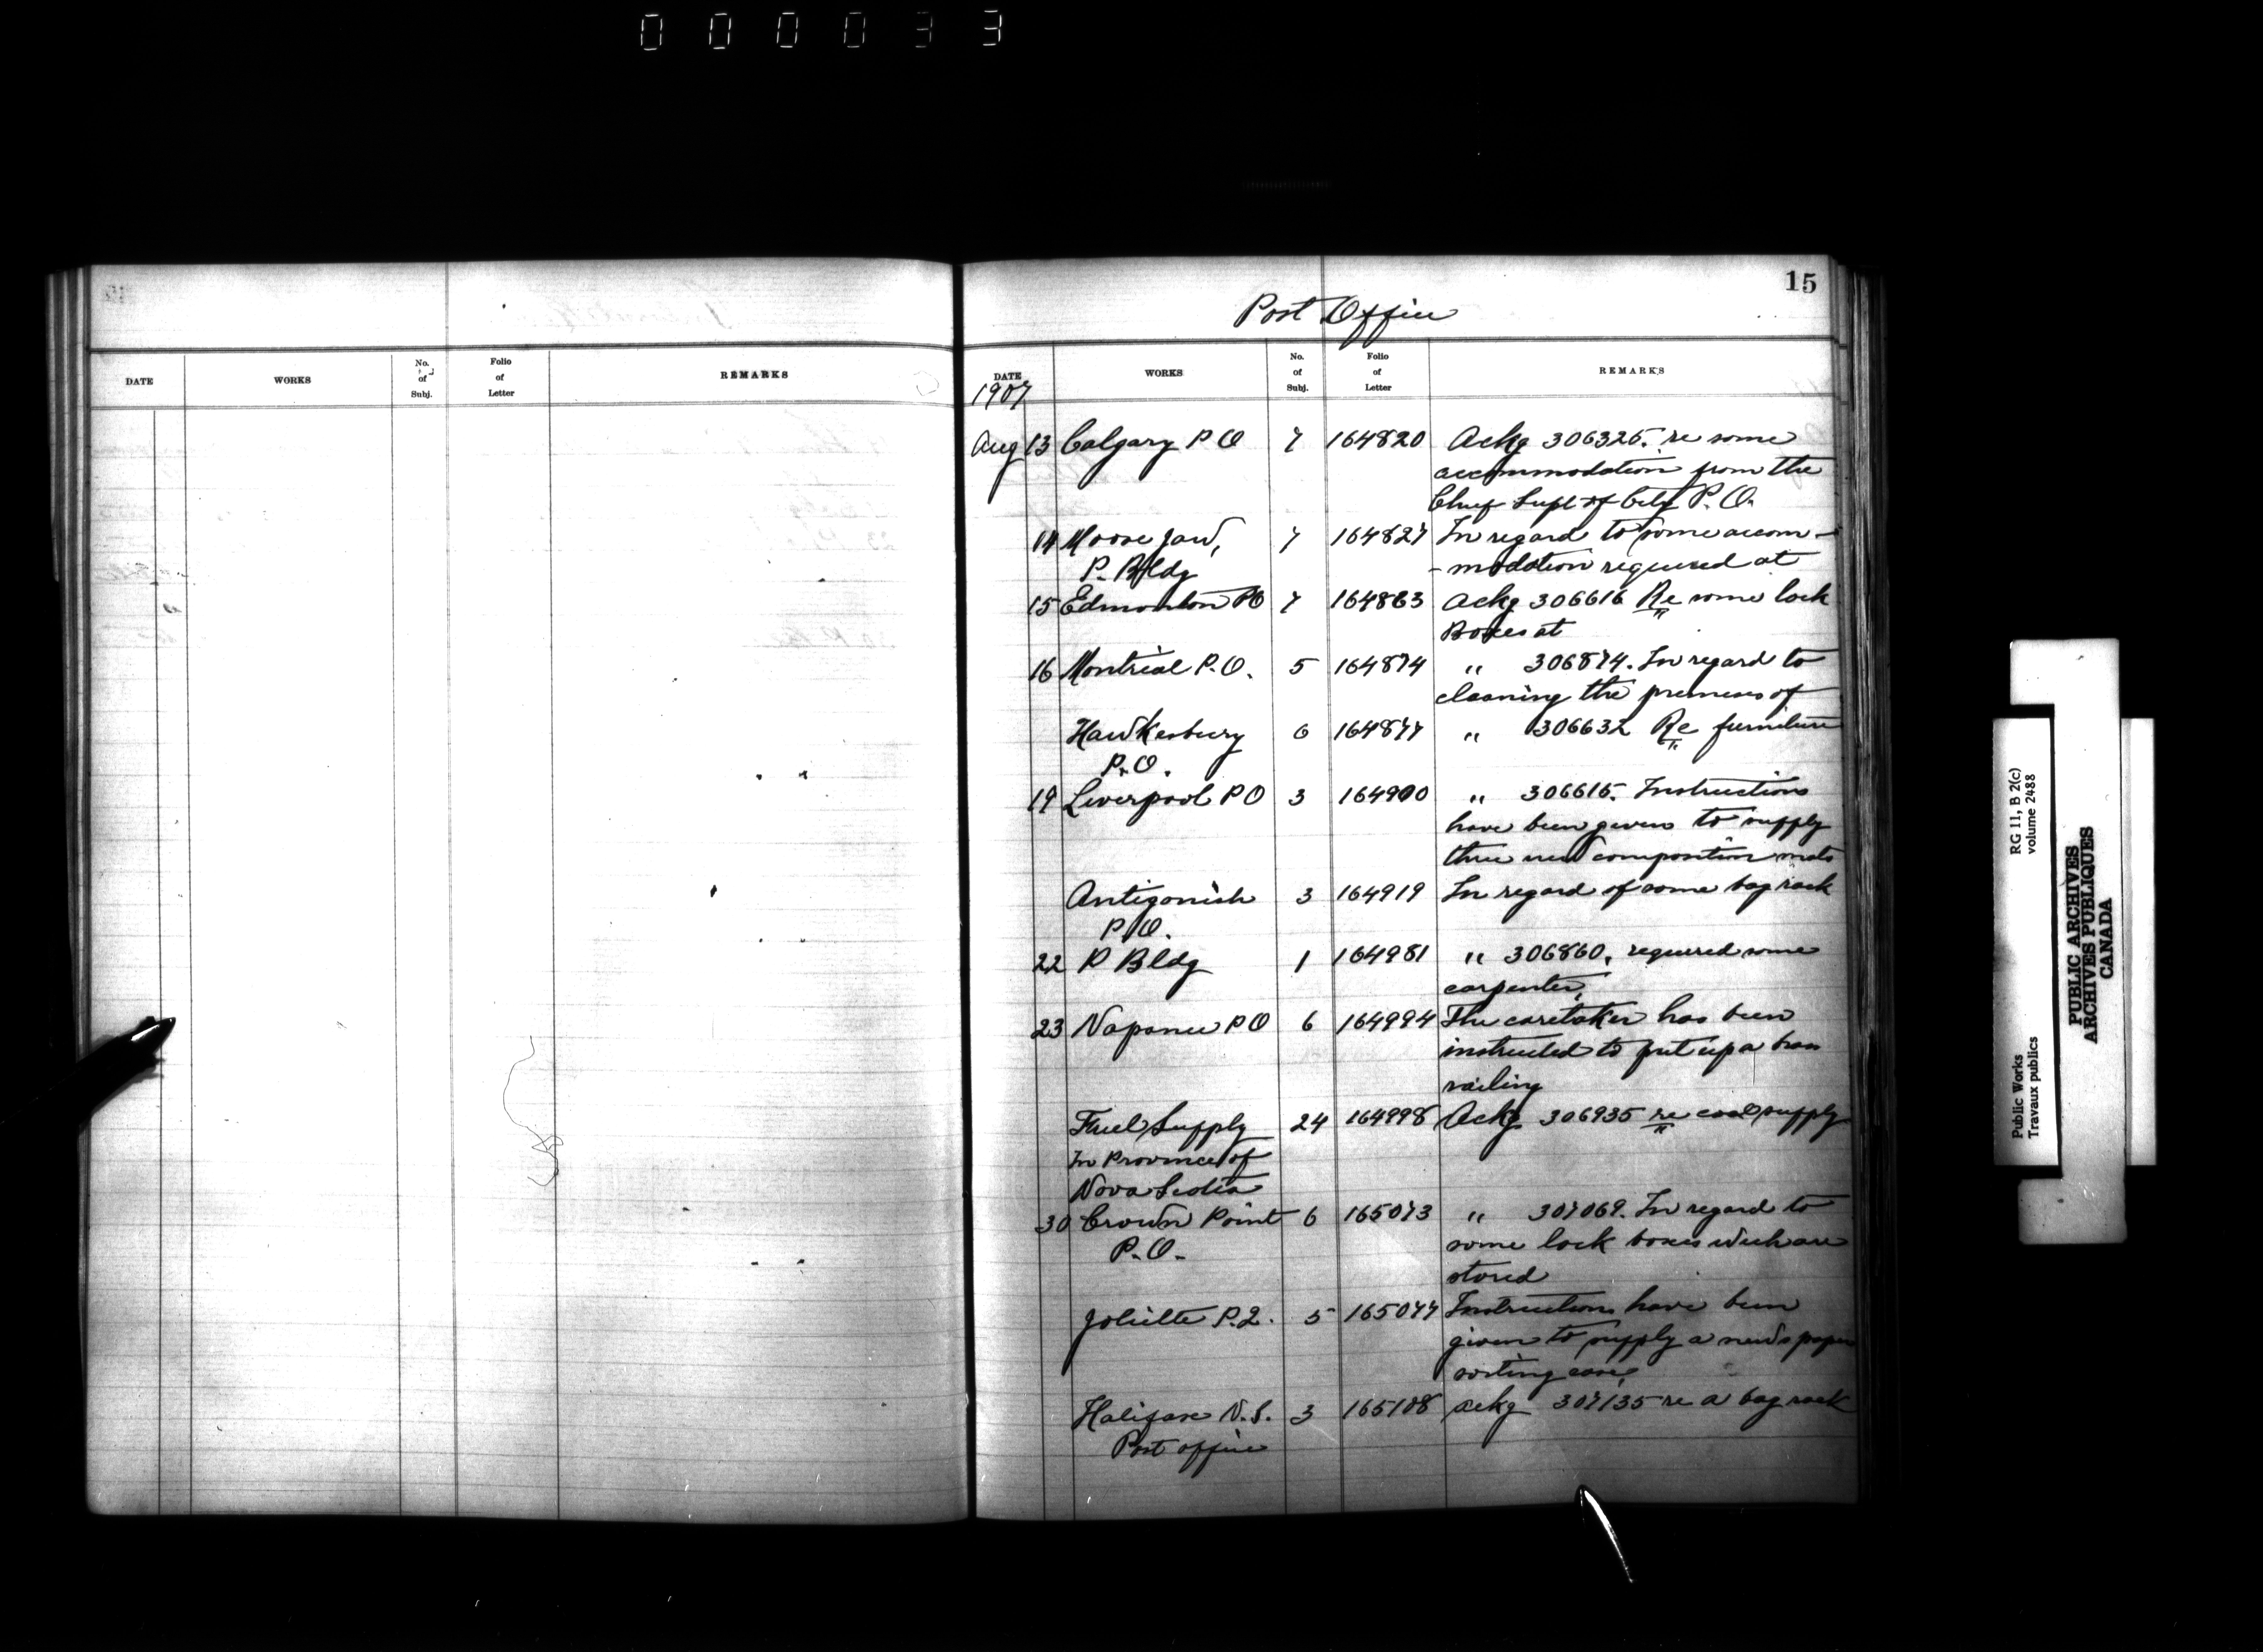 000033
15
Post Office
DATE WORKS No. of Subj. Folio of Letter REMARKS
DATE WORKS No. of Subj. Folio of Letter REMARKS
1907
Aug 13 Calgary P O 7 164820 Ackg 306325. re some
accommodation from the
Chief Supt of City P. O.
14 Moose Jaw, 7 164827 In regard to some accom-
P. Bldg -modation required at
15 Edmonton PO 7 164863 Ackg 306616 Re some lock
Boxes at
16 Montreal P. O. 5 164874 " 306874. In regard to
cleaning the premises of
Hawkesbury 6 164877 " 306632 Re furniture
P. O.
19 Liverpool P O 3 164900 " 306615. Instructions
have been given to supply
three new composition mats
Antigonish 3 164919 In regard of some bag rack
P. O.
22 P Bldg 1 164981 " 306860, required some
carpenter,
23 Napanee P O 6 164994 The caretaker has been
instructed to put up a brass
railing
Fuel Supply 24 164998 Ackg 306935 re coal supply
In Province of
Nova Scotia
30 Crown Point 6 165073 " 307069. In regard to
P. O. some lock boxes wich are
stored
Joliette P.Q. 5 165077 Instructions have been
given to supply a news paper
sorting case,
Halifax N. S. 3 165108 Ackg 307135 re a bag rack
Post office
Public Works
Travaux publics
RG 11, B 2(c)
volume 2488
PUBLIC ARCHIVES
ARCHIVES PUBLIQUES
CANADA